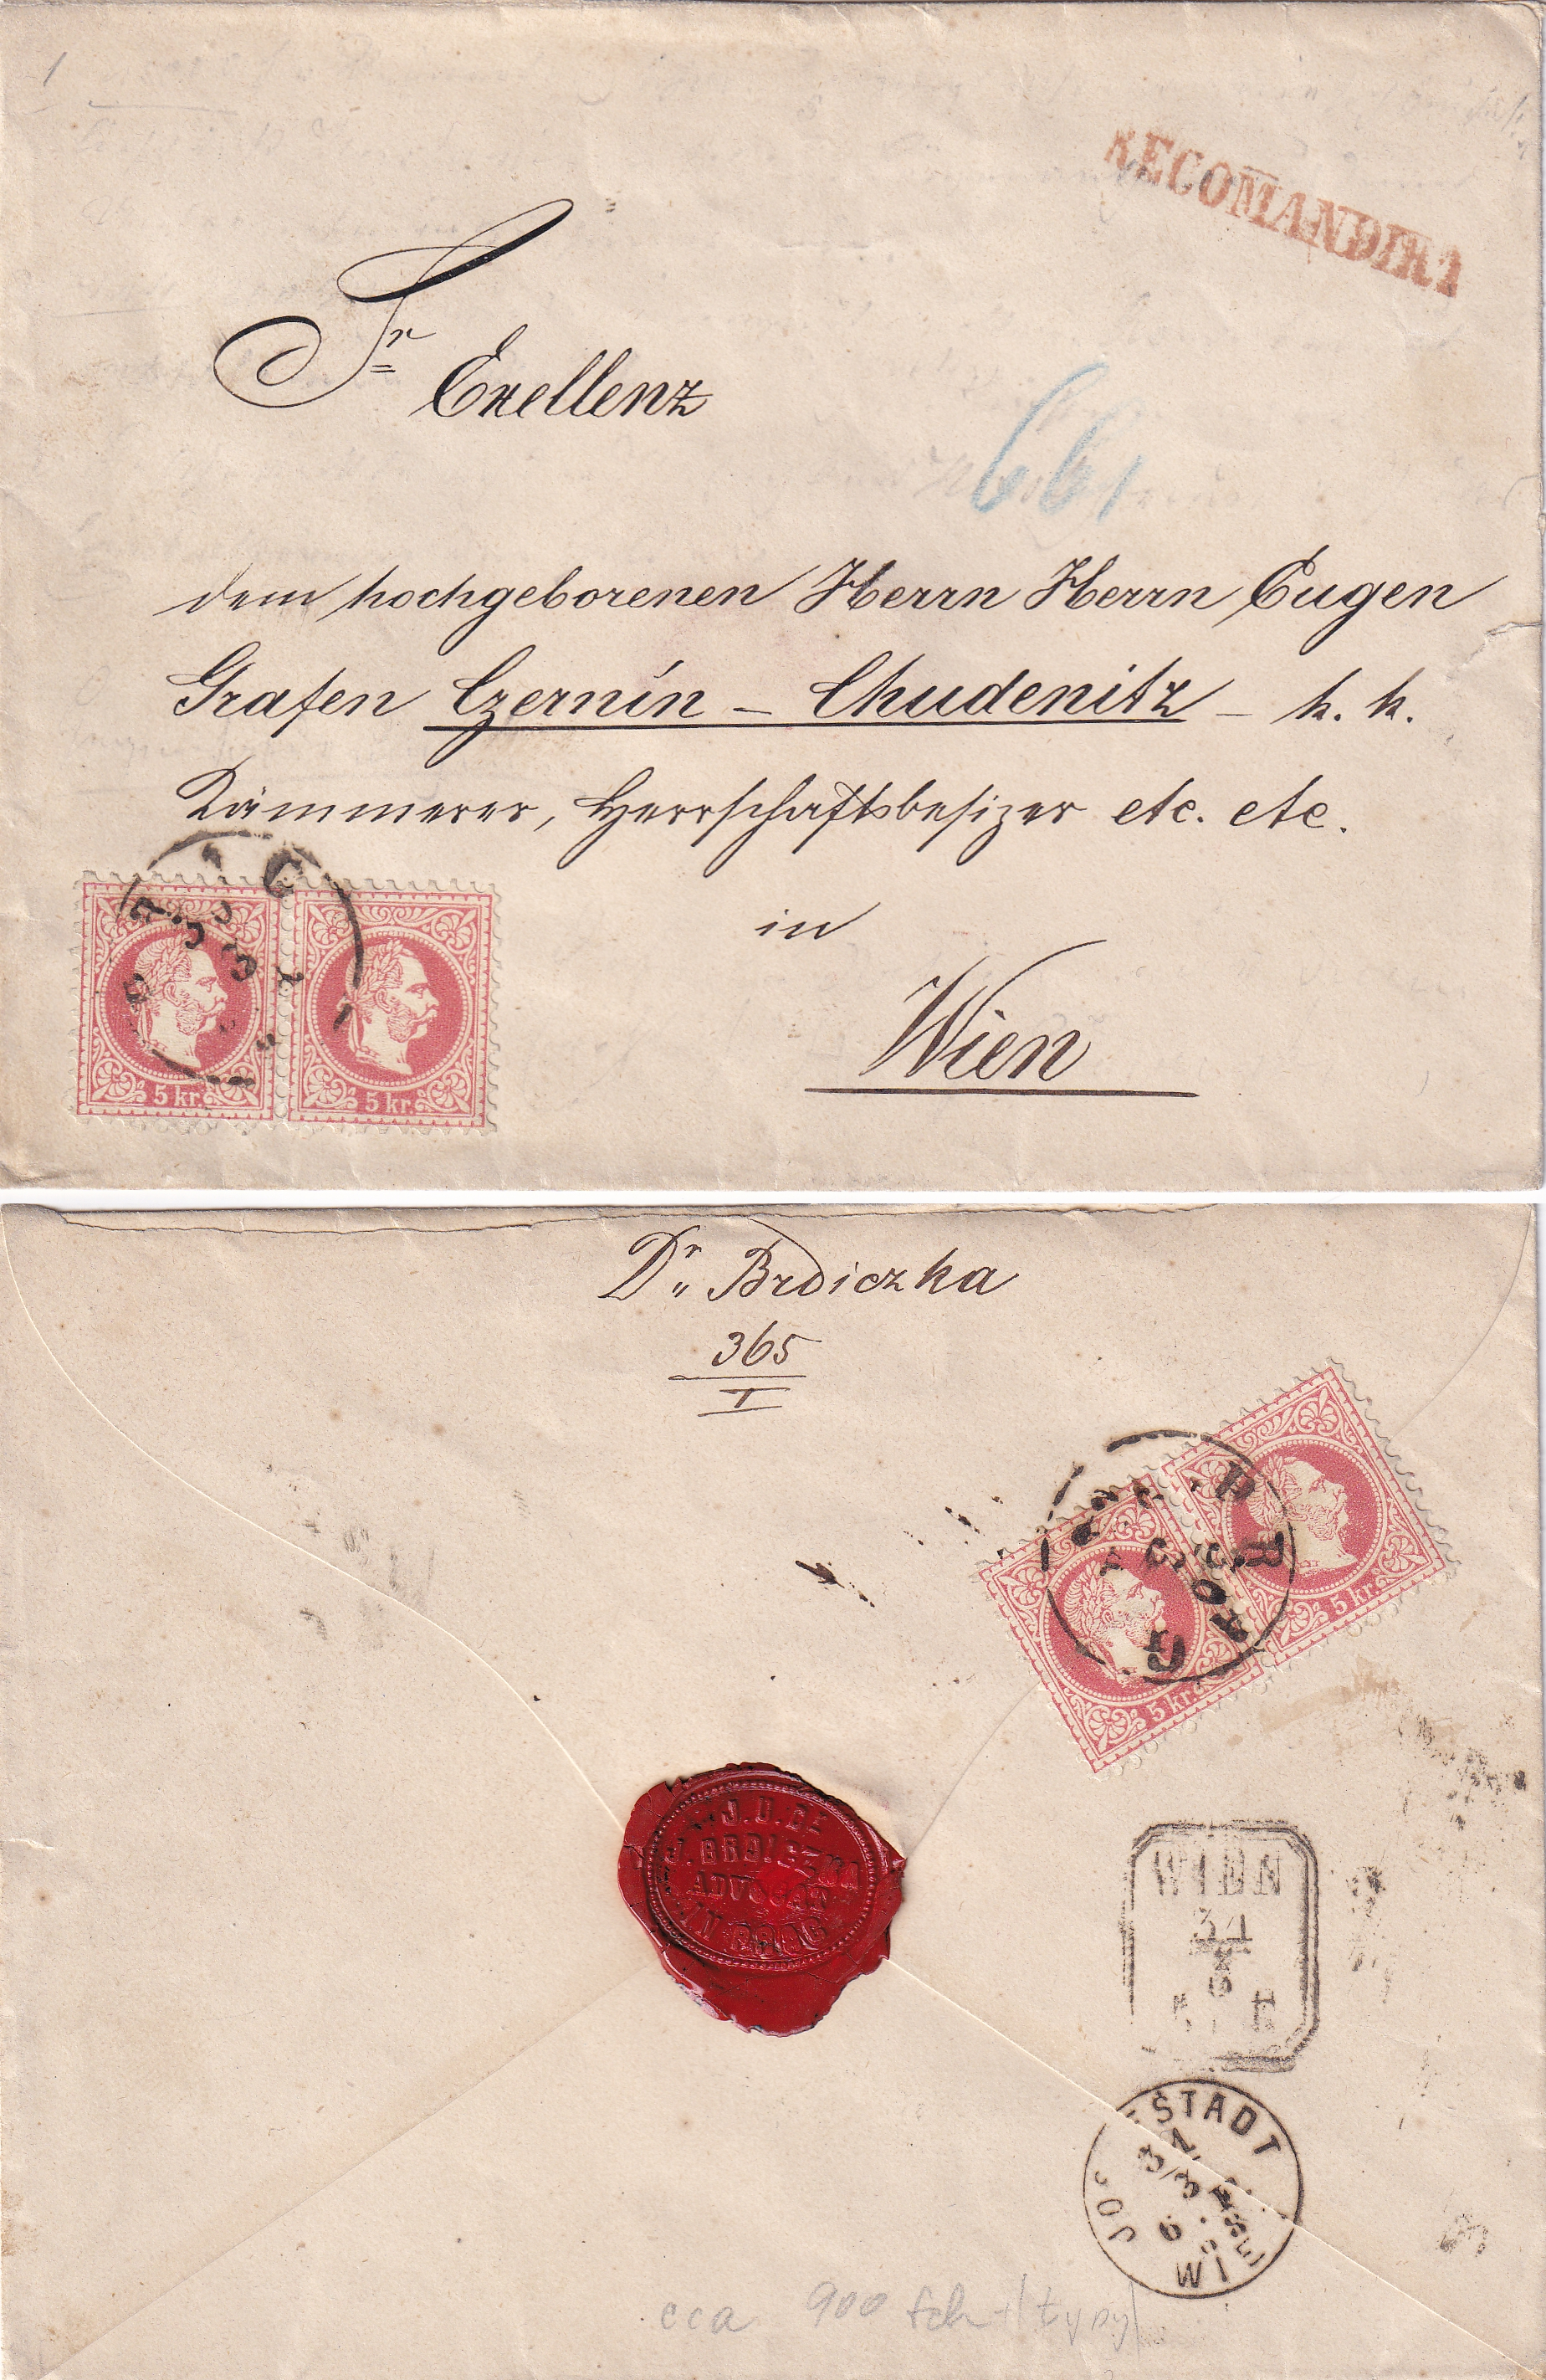 RECOMANDIRT
Sr
Exellenz
661
dem hochgeborenen Herrn Herrn Eugen
Grafen Czernin – Chudenitz – k. k.
Kämmerer, Herrschaftsbesizer etc. etc.
in
Wien
5 kr. 5 kr.
Dr. Brdiczka
365
I
PRAG
5 kr. 5 kr.
J.U.Dr
J. BRDICZKA
ADVOCAT
IN PRAG
WIEN
31
3
STADT
31/3
6
WIE
cca 900 fch + (typy)